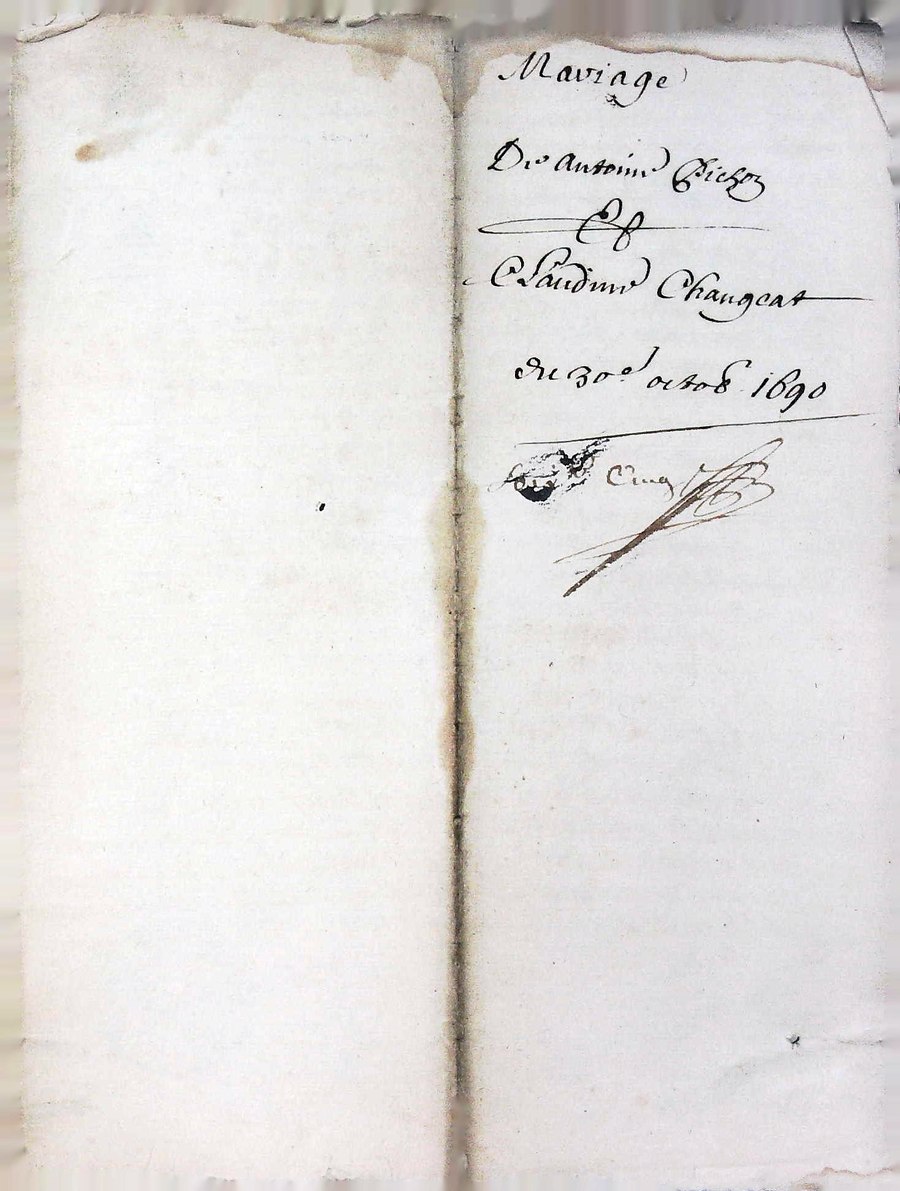 Mariage
De antoine Pichon
Et
Claudine Changeat
du 30e octob 1690
Cinq